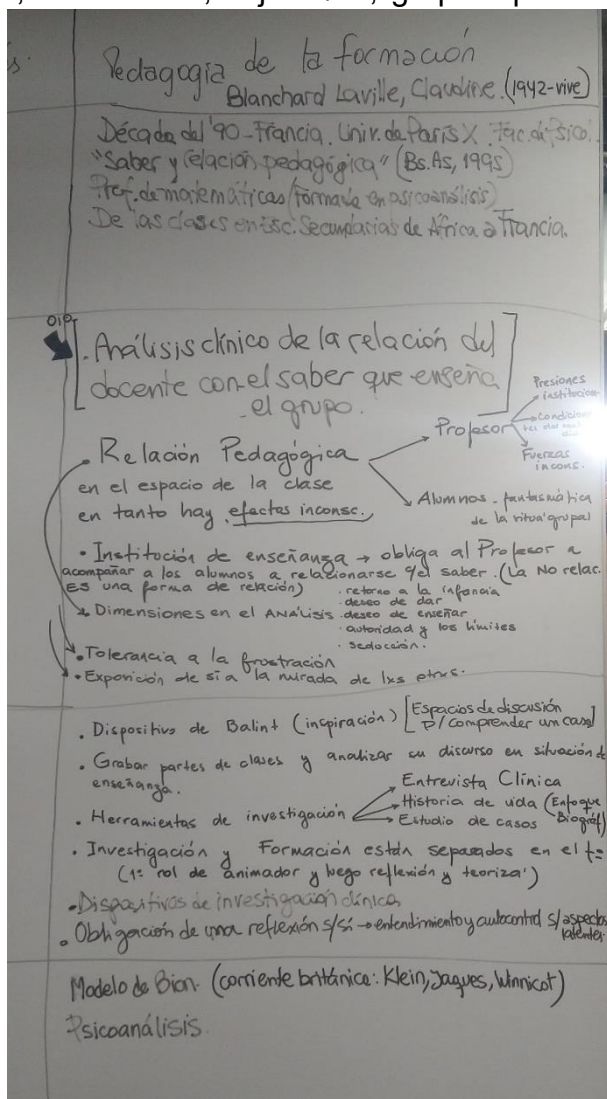 Pedagogía de la formación
Blanchard Laville, Claudine. (1942-vive)
Década del '90 - Francia. Univ. de París X. Fac. de Psico.
"Saber y relación pedagógica" (Bs.As, 1995)
Prof. de matemáticas (formada en psicoanálisis)
De las clases en Esc. Secundarias de África a Francia.
. Análisis clínico de la relación del
docente con el saber que enseña
- el grupo.
. Relación Pedagógica
en el espacio de la clase
en tanto hay efectos inconsc.
Profesor
Presiones
institucion
Fuerzas
incons.
Alumnos - fantasmática
grupal
. Institución de enseñanza → obliga al Profesor a
acompañar a los alumnos a relacionarse c/el saber. (La No relac.
Es una forma de relación)
. retorno a la infancia
. deseo de dar
. Dimensiones en el ANálisis . deseo de enseñar
. autoridad y los límites
. seducción.
. Tolerancia a la frustración
. Exposición de sí a la mirada de lxs otrxs.
. Dispositivo de Balint (inspiración) [Espacios de discusión
p/comprender un caso]
. Grabar partes de clases y analizar su discurso en situación d
enseñanza.
. Herramientas de investigación
Entrevista Clínica
Historia de vida (Enfoque
Biográf)
Estudio de casos
. Investigación y Formación están separados en el t=
(1º rol de animador y luego reflexión y teoriza')
. Dispositivos de investigación clínica
. Obligación de una reflexión s/sí → entendimiento y autocontrol s/aspectos
latentes.
Modelo de Bion. (corriente británica: Klein, Jaques, Winnicot)
Psicoanálisis.